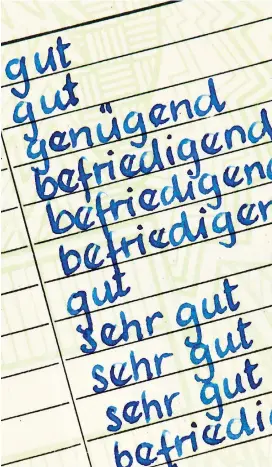 gut
gut
genügend
befriedigend
befriedigend
befriedigen
gut
sehr gut
sehr gut
sehr gut
befriedi